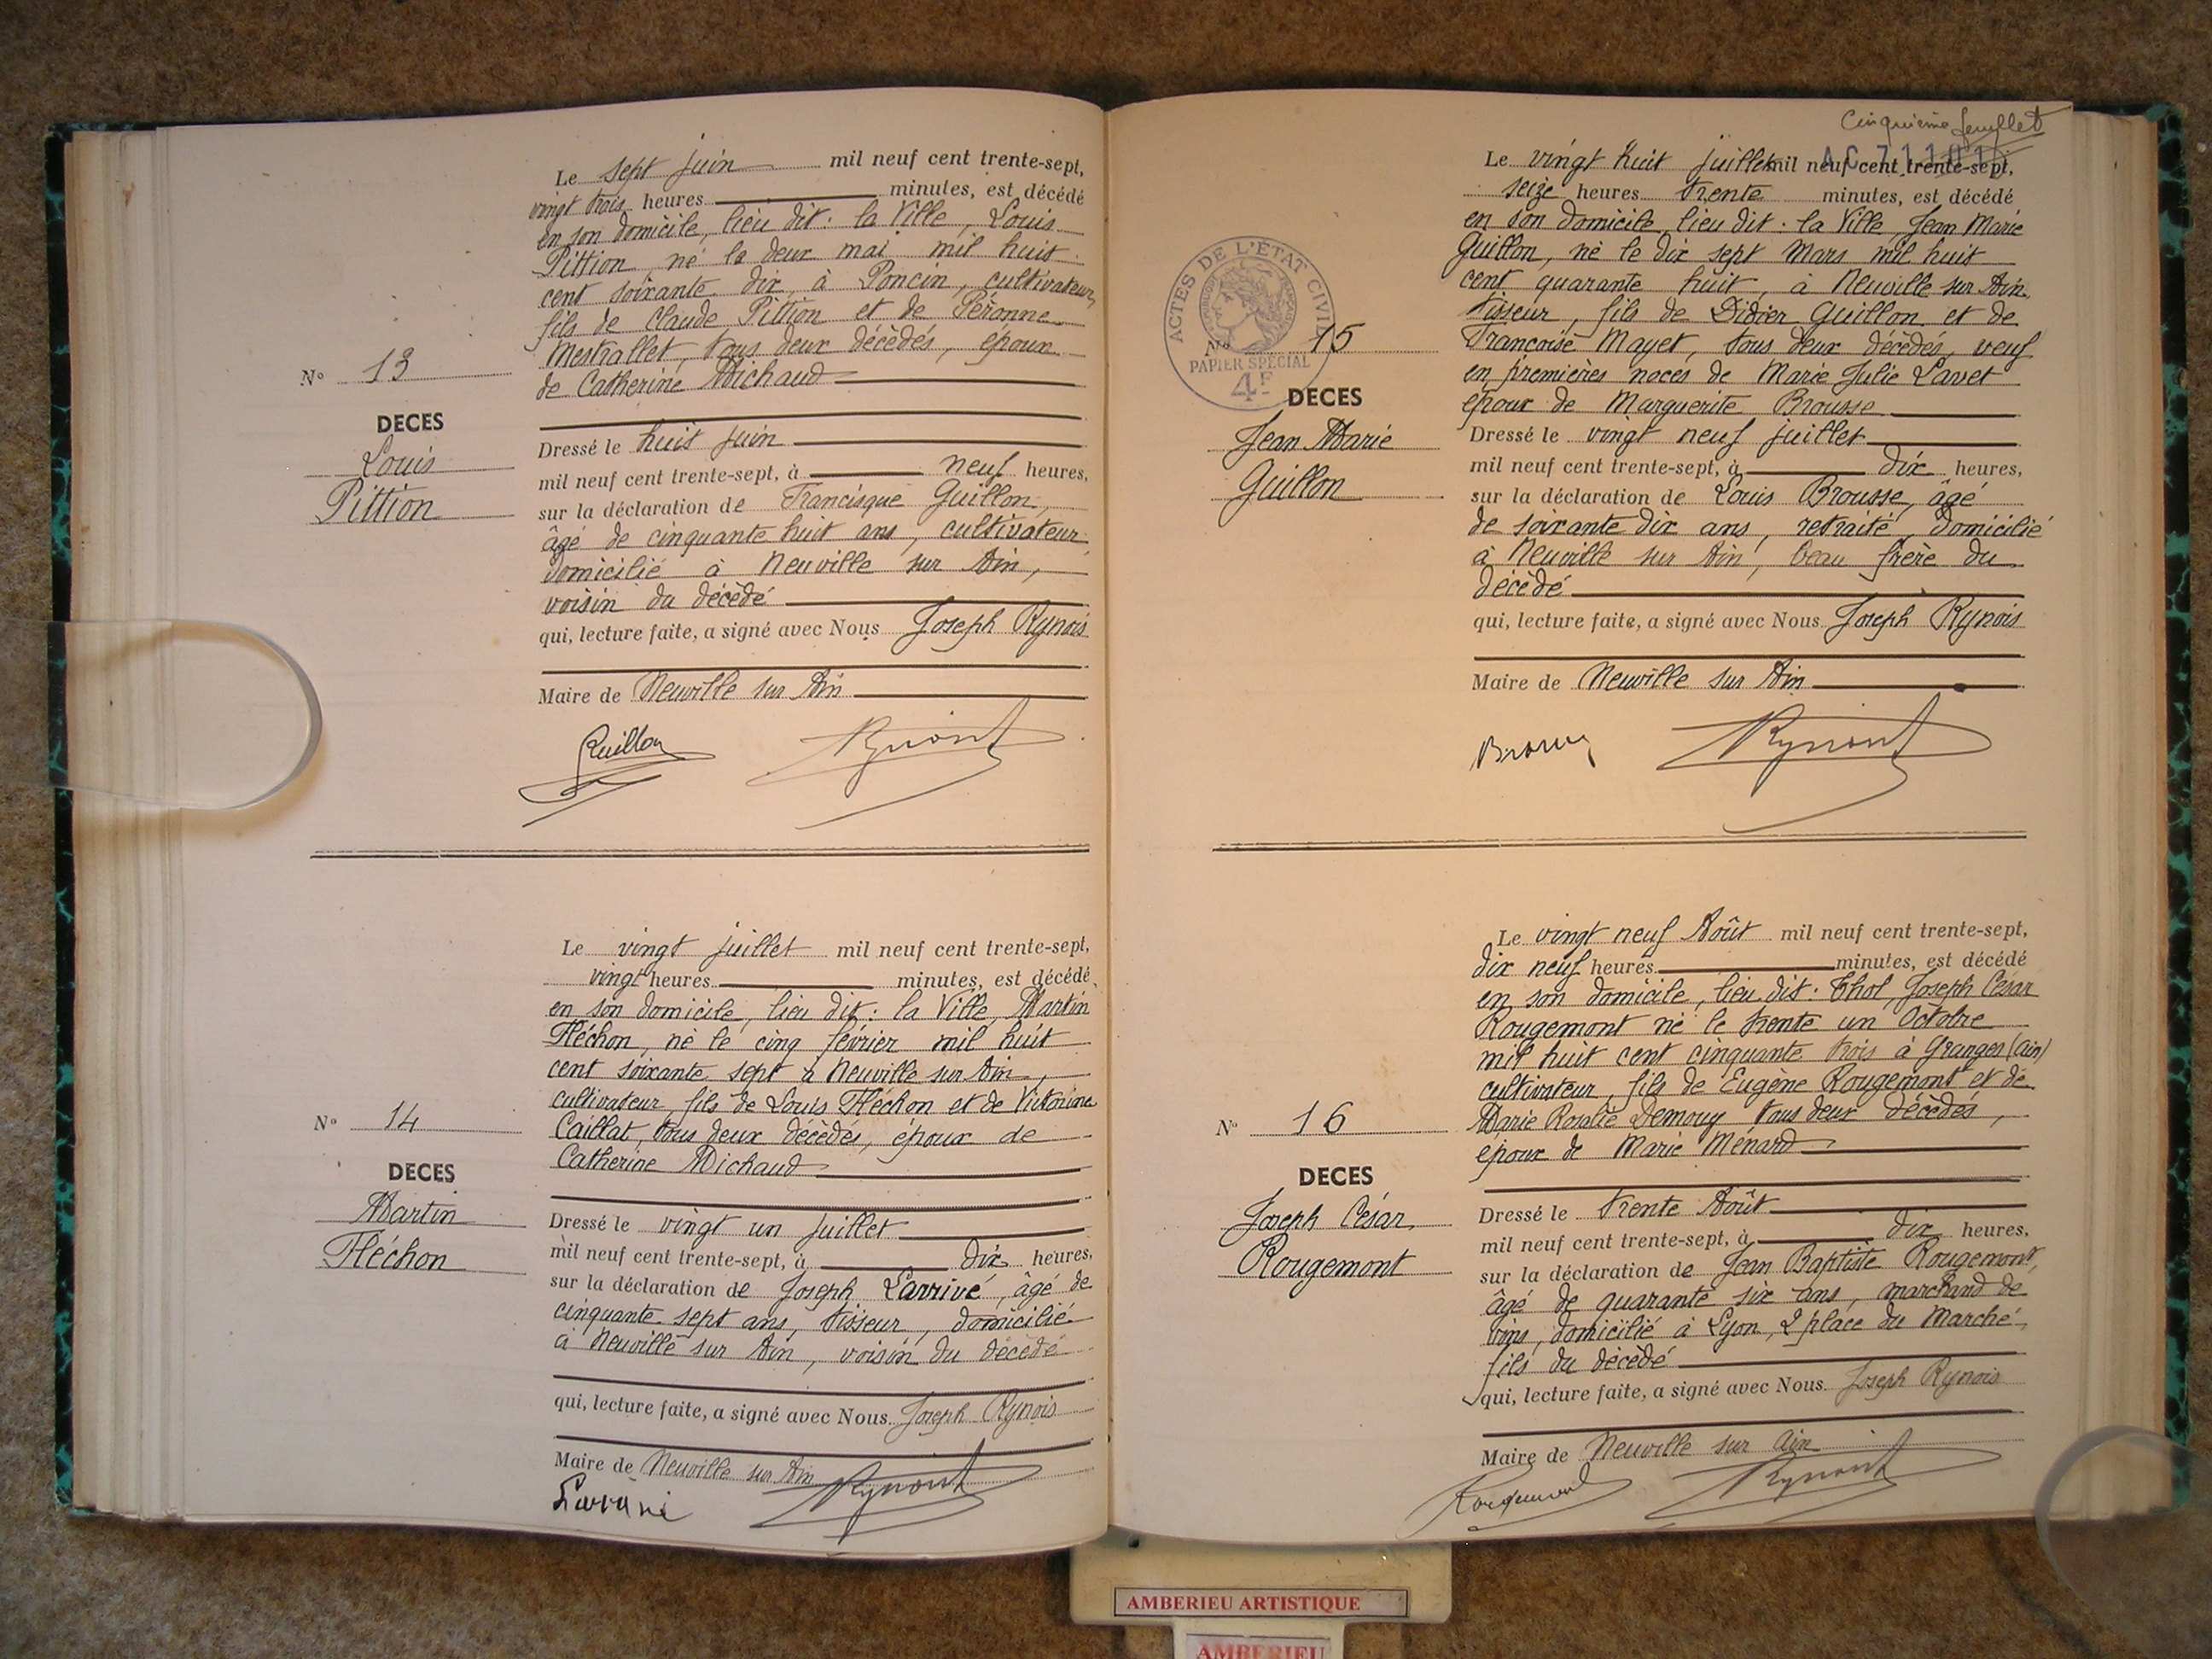 Le sept juin mil neuf cent trente-sept,
vingt trois heures minutes, est décédé
en son domicile, lieu dit: la Ville, Louis
Pittion, né le deux mai mil huit
cent soixante dix, à Poncin, cultivateur,
fils de Claude Pittion et de Péronne
Mestrallet, tous deux décédés, époux
de Catherine Michaud
N° 13
DECES
Louis
Pittion
Dressé le huit juin
mil neuf cent trente-sept, à neuf heures,
sur la déclaration de Francisque Guillon,
âgé de cinquante huit ans, cultivateur,
domicilié à Neuville sur Ain,
voisin du décédé
qui, lecture faite, a signé avec Nous Joseph Rynois
Maire de Neuville sur Ain
Guillon
Le vingt juillet mil neuf cent trente-sept,
vingt heures minutes, est décédé
en son domicile, lieu dit: la Ville, Martin
Fléchon, né le cinq février mil huit
cent soixante sept à Neuville sur Ain,
cultivateur, fils de Louis Fléchon et de Victorine
Caillat, tous deux décédés, époux de
Catherine Michaud
N° 14
DECES
Martin
Fléchon
Dressé le vingt un juillet
mil neuf cent trente-sept, à dix heures,
sur la déclaration de Joseph Larrivé, âgé de
cinquante sept ans, tisseur, domicilié
à Neuville sur Ain, voisin du décédé
qui, lecture faite, a signé avec Nous Joseph Rynois
Maire de Neuville sur Ain
Cinquième feuillet
Le vingt huit juillet mil neuf cent trente-sept,
seize heures trente minutes, est décédé
en son domicile, lieu dit: la Ville, Jean Marie
Guillon, né le dix sept Mars mil huit
cent quarante huit, à Neuville sur Ain
tisseur, fils de Didier Guillon et de
Françoise Mayet, tous deux décédés, veuf
en premières noces de Marie Julie Lavet
époux de Marguerite Brousse
ACTES DE L'ETAT CIVIL
PAPIER SPECIAL
4F
N° 15
DECES
Jean Marie
Guillon
Dressé le vingt neuf juillet
mil neuf cent trente-sept, à dix heures,
sur la déclaration de Louis Brousse, âgé
de soixante dix ans, retraité, domicilié
à Neuville sur Ain, beau frère du
décédé
qui, lecture faite, a signé avec Nous Joseph Rynois
Maire de Neuville sur Ain
Le vingt neuf Août mil neuf cent trente-sept,
dix neuf heures minutes, est décédé
en son domicile, lieu dit: Thol, Joseph César
Rougemont né le trente un Octobre
mil huit cent cinquante trois à Granges (Ain)
cultivateur, fils de Eugène Rougemont et de
Marie Rosalie Demouy tous deux décédés,
époux de Marie Ménard
N° 16
DECES
Joseph César
Rougemont
Dressé le trente Août
mil neuf cent trente-sept, à dix heures,
sur la déclaration de Jean Baptiste Rougemont,
âgé de quarante six ans, marchand de
vins, domicilié à Lyon, 2 place du Marché,
fils du décédé
qui, lecture faite, a signé avec Nous Joseph Rynois
Maire de Neuville sur Ain
Rougemont
AMBERIEU ARTISTIQUE
AMBERIEU